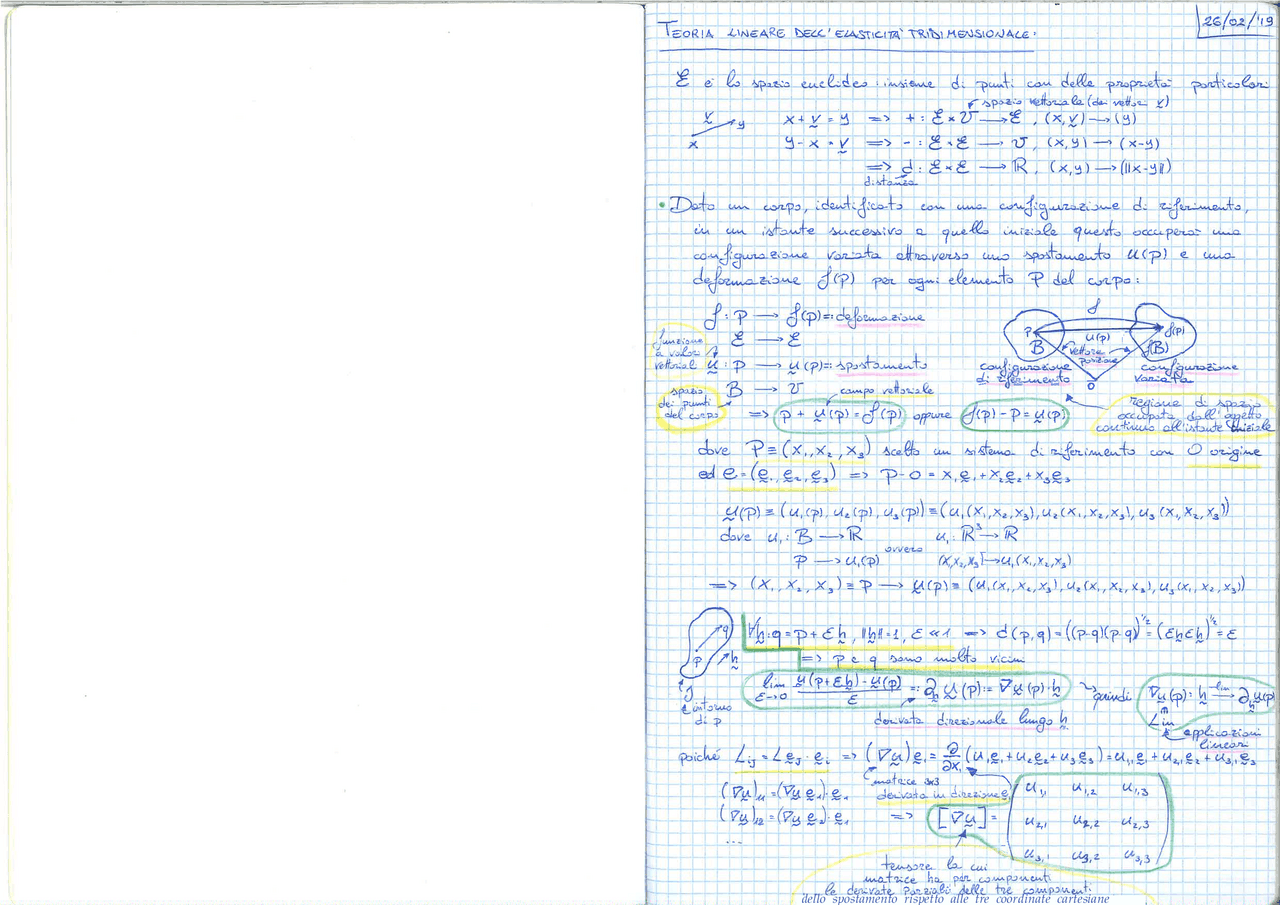 26/02/'19
TEORIA LINEARE DELL'ELASTICITÀ TRIDIMENSIONALE:
ℰ è lo spazio euclideo: insieme di punti con delle proprietà particolari
spazio vettoriale (dei vettori v)
v y x
x + v = y => + : ℰ × 𝒱 → ℰ, (x, v) → (y)
y - x = v => - : ℰ × ℰ → 𝒱, (x, y) → (x-y)
=> d : ℰ × ℰ → ℝ, (x, y) → (||x-y||)
distanza
• Dato un corpo, identificato con una configurazione di riferimento,
in un istante successivo a quello iniziale questo occuperà una
configurazione variata attraverso uno spostamento u(p) e una
deformazione f(p) per ogni elemento P del corpo:
f : P → f(p) =: deformazione
ℰ → ℰ
funzione
a valori
vettoriali
u : P → u(p) =: spostamento
B → 𝒱
spazio
dei punti
del corpo
campo vettoriale
=> p + u(p) = f(p) oppure f(p) - P = u(p)
f
P u(p) f(p)
B vettore posizione f(B)
configurazione di riferimento
configurazione variata
O
regione di spazio
occupata dall'oggetto
continuo all'istante iniziale
dove P ≡ (x₁, x₂, x₃) scelto un sistema di riferimento con O origine
ed e = (e₁, e₂, e₃) => P - O = x₁e₁ + x₂e₂ + x₃e₃
u(p) ≡ (u₁(p), u₂(p), u₃(p)) ≡ (u₁(x₁, x₂, x₃), u₂(x₁, x₂, x₃), u₃(x₁, x₂, x₃))
dove u₁ : B → ℝ ovvero u₁ : ℝ³ → ℝ
P → u₁(p) (x₁, x₂, x₃) → u₁(x₁, x₂, x₃)
=> (x₁, x₂, x₃) ≡ P → u(p) ≡ (u₁(x₁, x₂, x₃), u₂(x₁, x₂, x₃), u₃(x₁, x₂, x₃))
q p h
intorno
di p
∀h : q = p + εh, ||h|| = 1, ε << 1 => d(p, q) = ((p-q)(p-q))^½ = (εhεh)^½ = ε
=> p e q sono molto vicini
lim ε→0 (u(p+εh) - u(p))/ε =: ∂ₕu(p) := ∇u(p)·h quindi ∇u(p) : h →lin ∂ₕu(p)
derivata direzionale lungo h
Lin
applicazioni
lineari
poiché Lᵢⱼ = Leⱼ·eᵢ => (∇u)e₁ = ∂/∂x₁ (u₁e₁ + u₂e₂ + u₃e₃) = u₁,₁e₁ + u₂,₁e₂ + u₃,₁e₃
matrice 3x3
derivata in direzione e₁
(∇u)₁₁ = (∇u e₁)·e₁
(∇u)₁₂ = (∇u e₂)·e₁
...
=> [∇u] =
u₁,₁ u₁,₂ u₁,₃
u₂,₁ u₂,₂ u₂,₃
u₃,₁ u₃,₂ u₃,₃
tensore la cui
matrice ha per componenti
le derivate parziali delle tre componenti
dello spostamento rispetto alle tre coordinate cartesiane